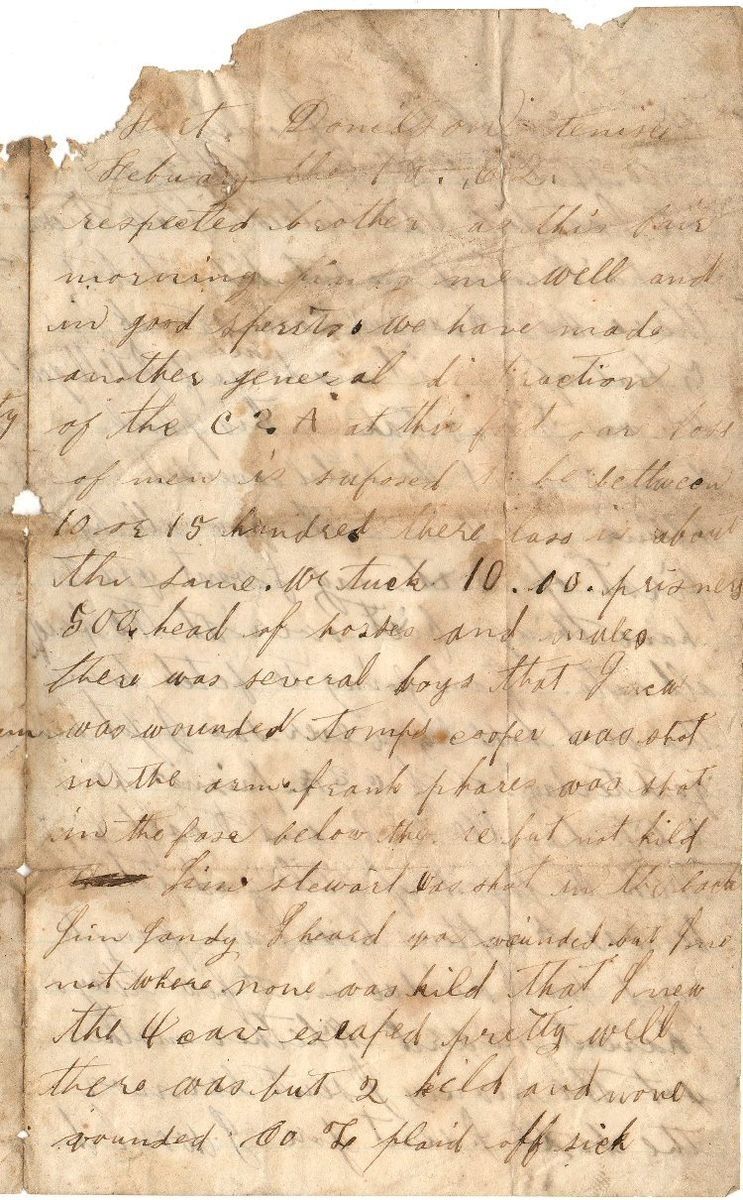 Fort Donilson tenisee
Febuary the 18. 62.
respected brother as this fair
morning finds me well and
in good sperits. we have made
another general distraction
of the C. S. A at this fort our loss
of men is suposed to be bettween
10 or 15 hundred there loss is about
the same. We tuck 10.00. prisners
500, head of horses and mules
there was several boys that I new
was wounded cooper was shot
in the arm. frank phares was shot
in the fase below the ie but not kild
Jim stewart was shot in the back
Jim I heard was wounded but I no
not where none was kild that I new
the 4 cav escaped pretty well
there was but 2 kild and none
wounded Co plaid off sick